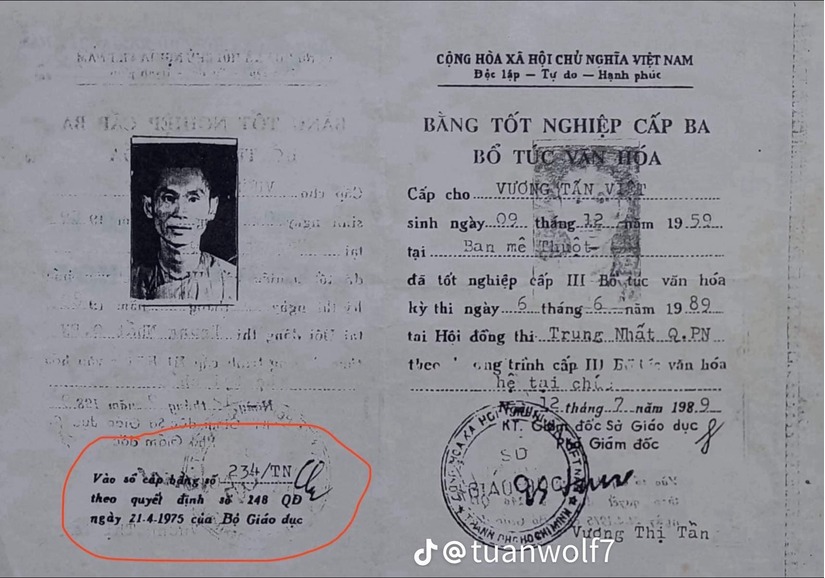 CỘNG HÒA XÃ HỘI CHỦ NGHĨA VIỆT NAM
Độc lập — Tự do — Hạnh phúc
BẰNG TỐT NGHIỆP CẤP BA
BỔ TÚC VĂN HÓA
Cấp cho VƯƠNG TẤN VIỆT
sinh ngày 09 tháng 12 năm 1959
tại Ban mê Thuột
đã tốt nghiệp cấp III Bổ túc văn hóa
kỳ thi ngày 6 tháng 6 năm 1989
tại Hội đồng thi Trung Nhất Q.PN
trình cấp III văn hóa
hệ tại
12 tháng 7 năm 1989
KT. Giám đốc Sở Giáo dục
Phó Giám đốc
SỞ
GIÁO DỤC
Vương Thị Tần
Vào sổ cấp bằng số 234/TN
theo quyết định số 248 QĐ
ngày 21-4-1975 của Bộ Giáo dục
@tuanwolf7